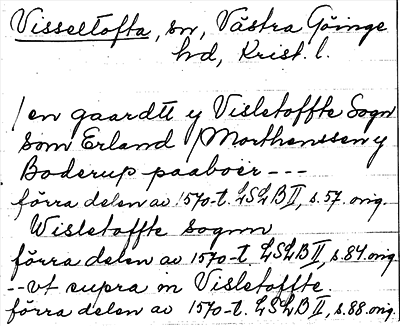 Visseltofta, sn, Västra Göinge
hd, Krist. l.
/en gaardtt y Visletoffte Sogn
som Erland /Morthenssen y
Boderup paaboer ---
förra delen av 1570-t. LSLB II, s. 57. orig.
Wisletoffte sognn
förra delen av 1570-t. LSLB II, s. 84. orig
--vt supra in Visletoffte.
förra delen av 1570-t. LSLB II, s. 88. orig.